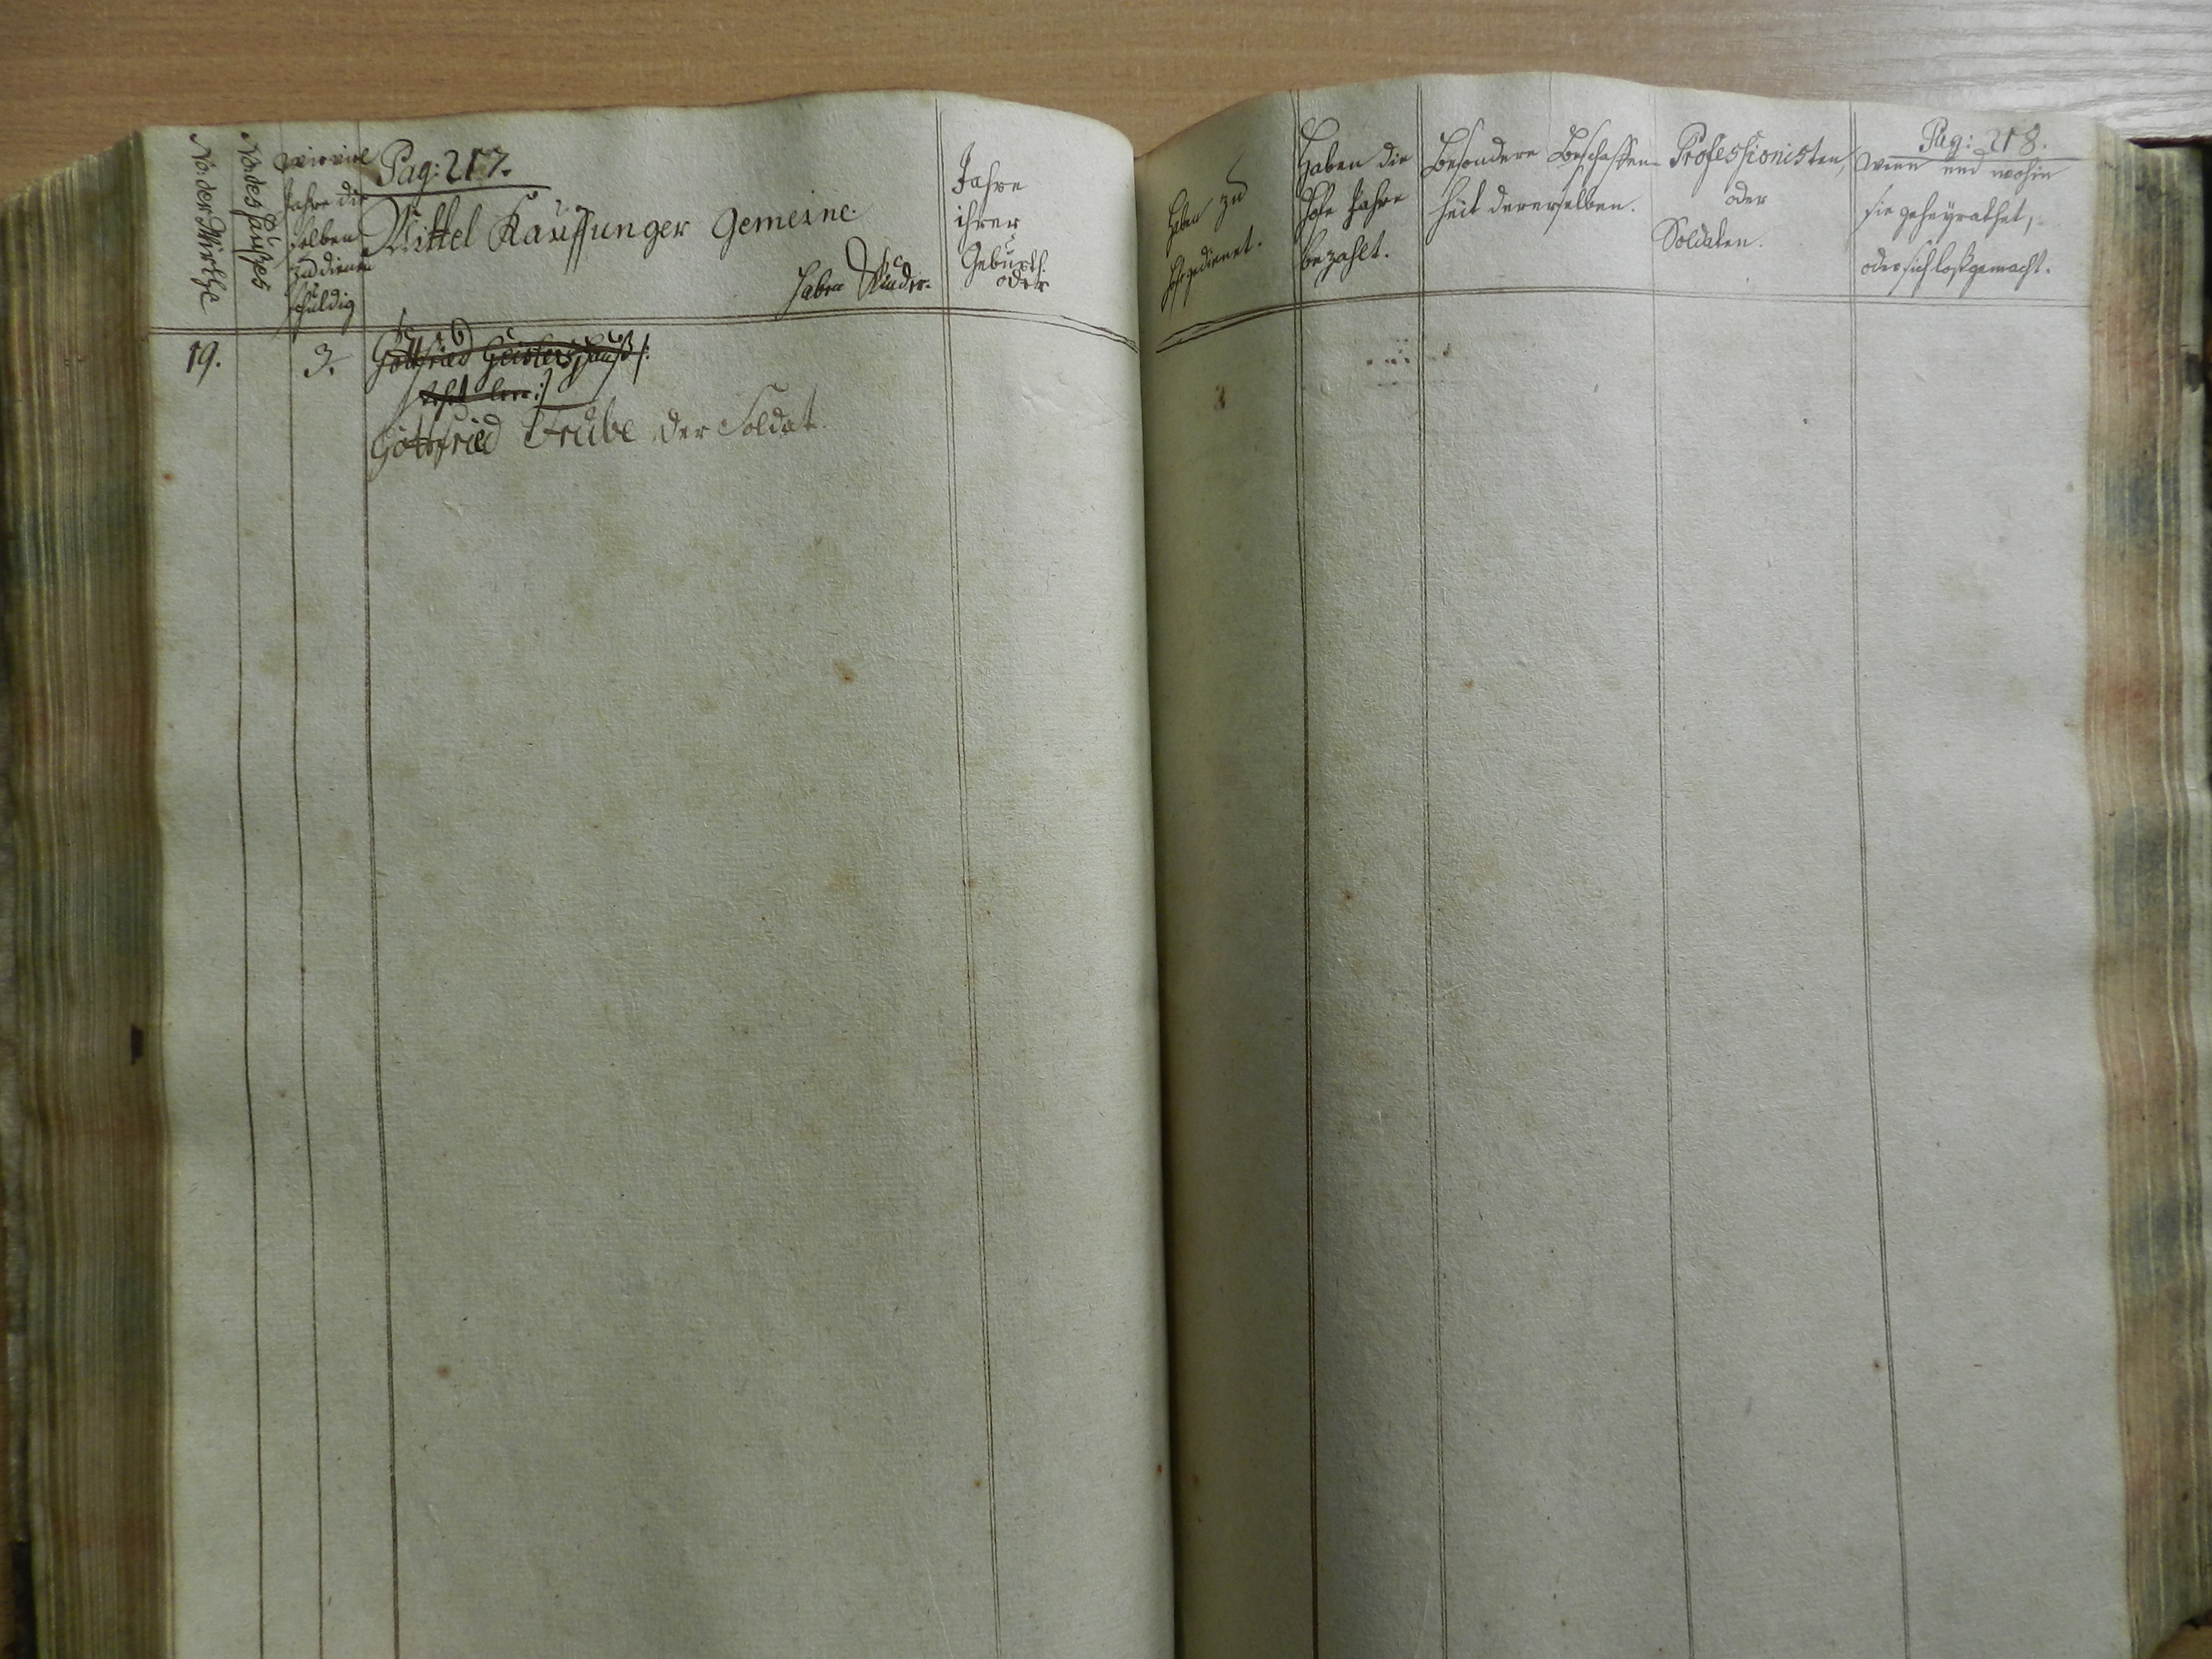 No. der Wirthe
No. des Haußes
wie viel
Jahre die
selben
zu dienen
schuldig
Pag: 217.
Mittel Kauffunger Gemeine.
Haben Kinder.
Jahre
ihrer
Geburth.
oder
19.
3.
Gottfried Geislers Hauß /:
steht leer :/
Gottfried Trube der Soldat.
Haben zu
Hofe gedienet.
Haben die
Hofe Jahre
bezahlt.
Besondere Beschaffen-
heit dererselben.
Professionisten,
oder
Soldaten.
Pag: 218.
wenn und wohin
sie geheÿrathet,
oder sich loßgemacht.